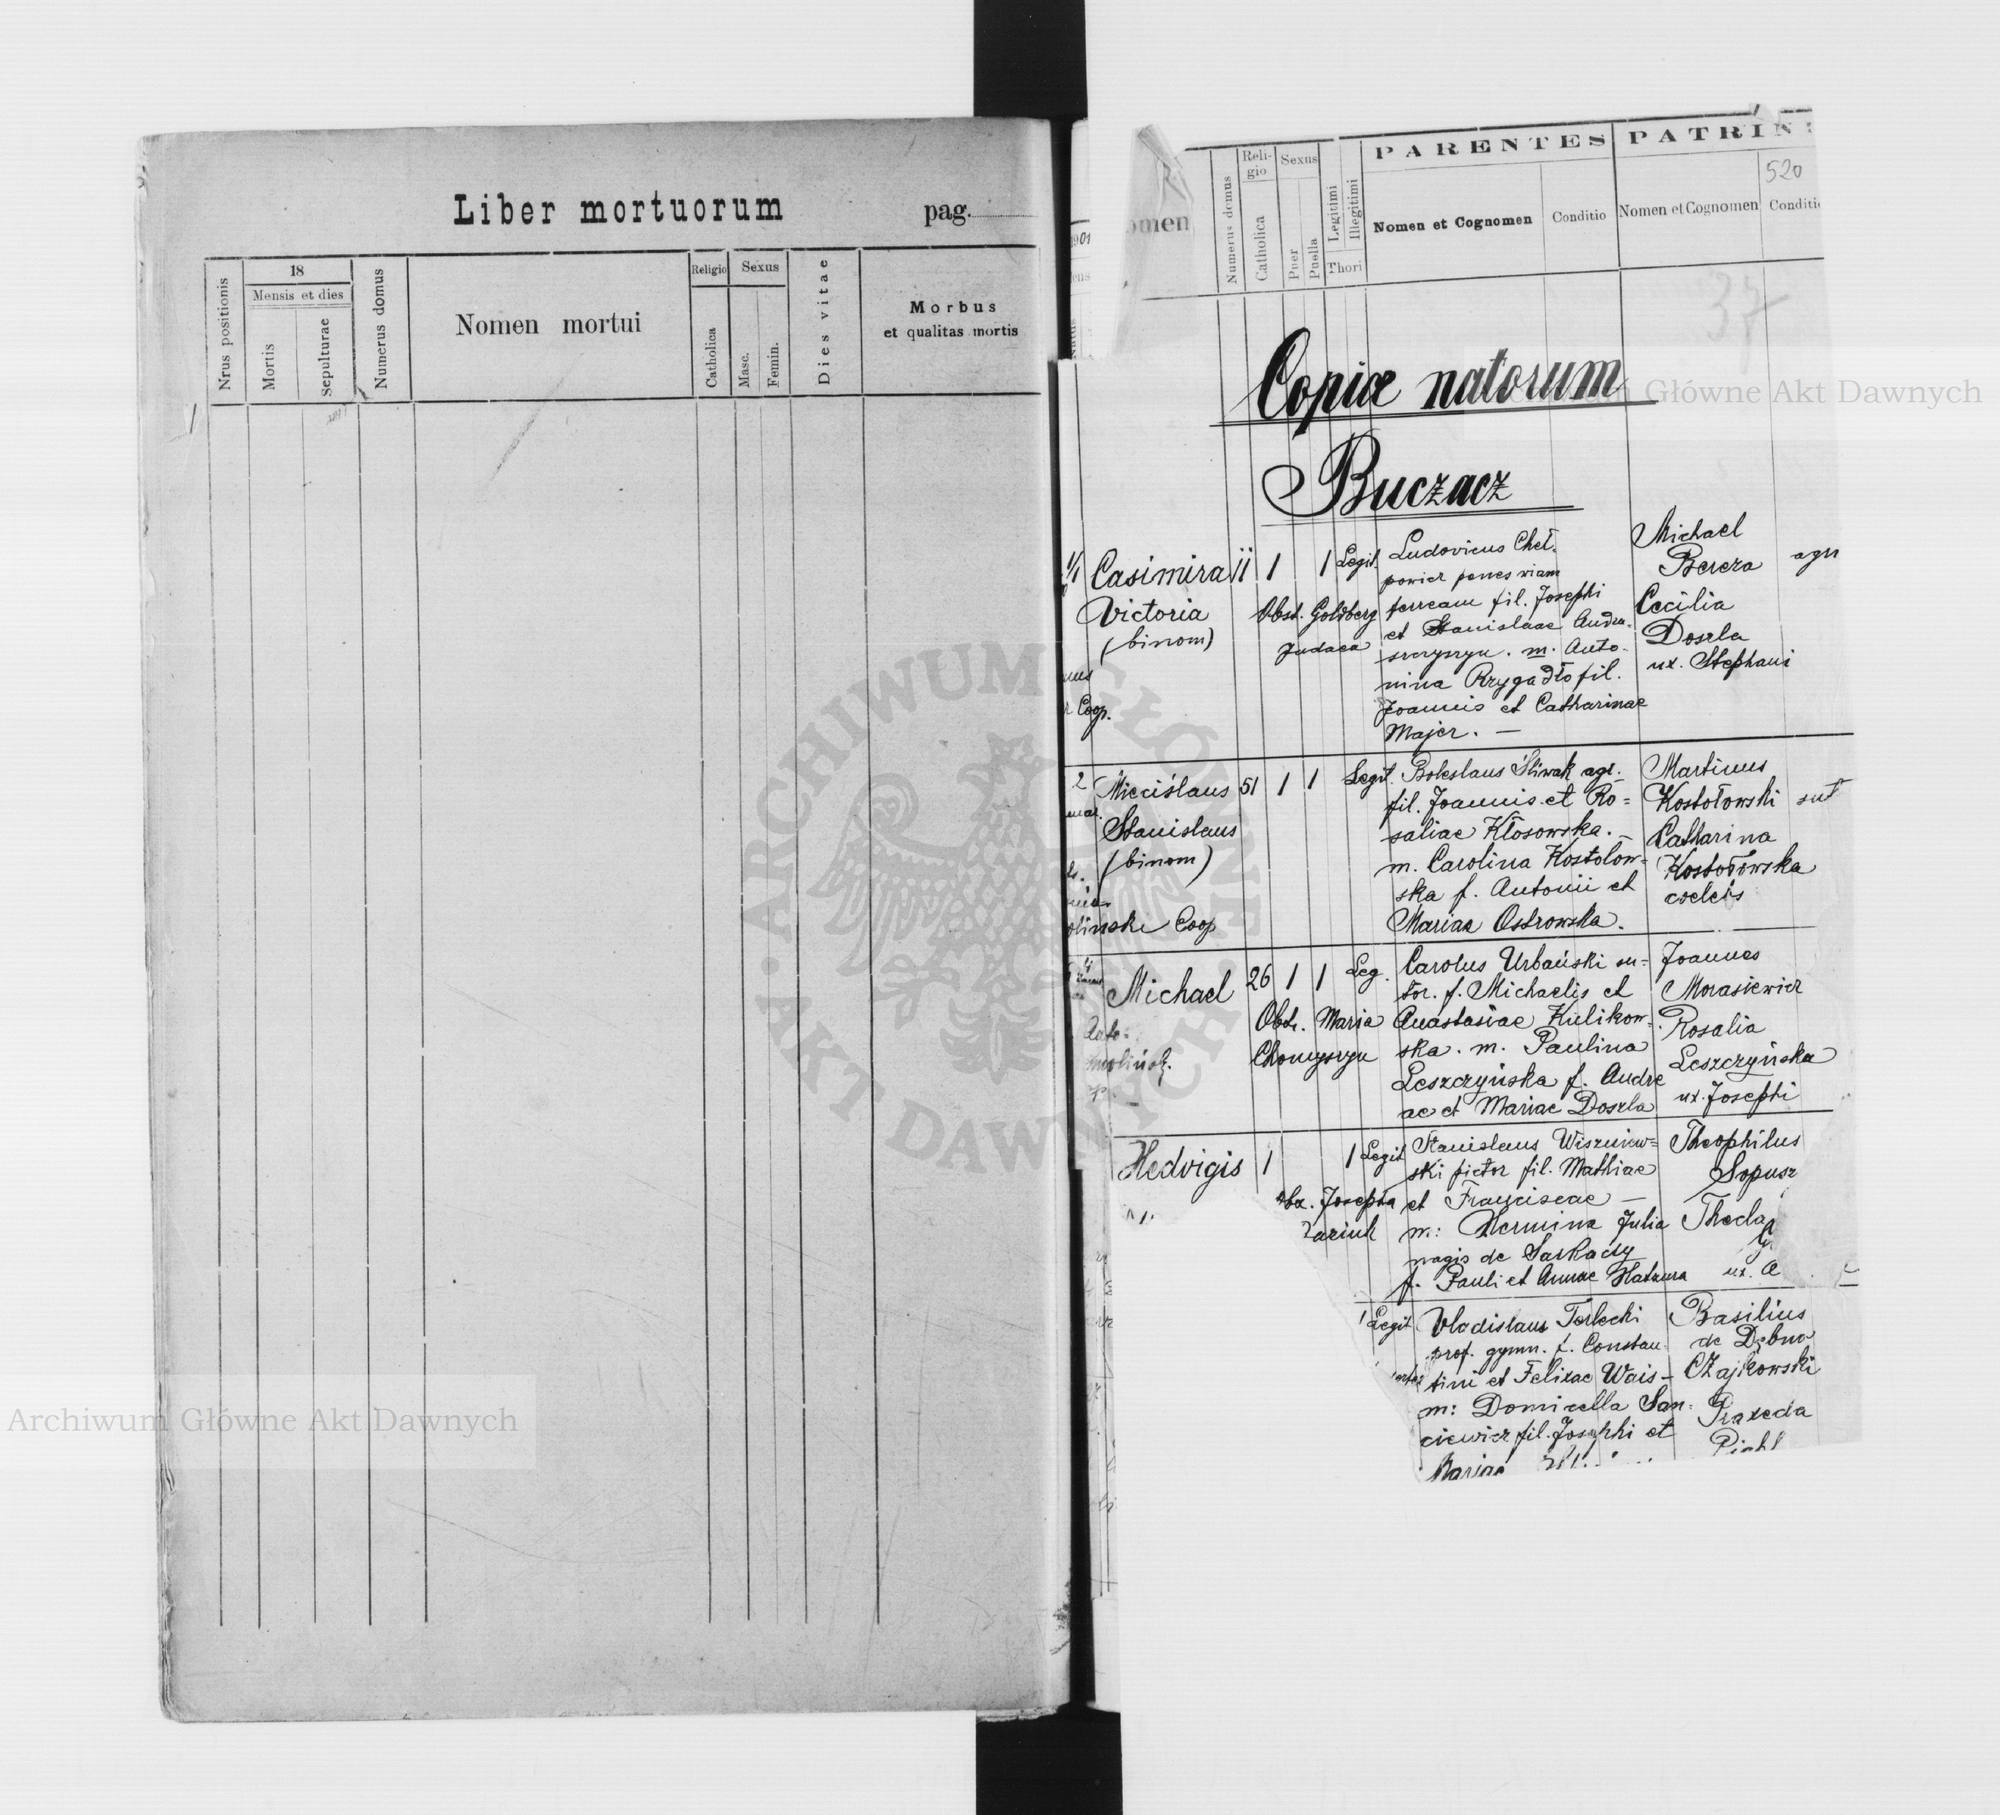 Liber mortuorum
pag.
Nrus positionis
18
Mensis et dies
Mortis
Sepulturae
Numerus domus
Nomen mortui
Religio
Catholica
Sexus
Masc.
Femin.
Dies vitae
Morbus
et qualitas mortis
Numerus domus
Religio
Catholica
Sexus
Puer
Puella
Legitimi
Illegitimi
Thori
PARENTES
Nomen et Cognomen
Conditio
PATRINI
520
Nomen et Cognomen
37
Copiae natorum
Buczacz
Casimira 11 1 1 Legit.
Victoria
(binom)
Obst. Goldberg
Judaea
Coop.
Ludovicus Cheł-
powicz penes viam
ferream fil. Josephi
et Stanislaae Andru-
szczyszyn. m. Anto-
nina Przygadło fil.
Joannis et Catharinae
Majer. —
Michael
Bereza
Cecilia
Doszla
ux. Stephani
Miecislaus 51 1 1 Legit.
Stanislaus
(binom)
Coop
Boleslaus Śliwak agr.
fil. Joannis et Ro=
saliae Kłosowska. —
m. Carolina Kostołow=
ska f. Antonii et
Mariae Ostrowska.
Martinus
Kostołowski
Catharina
Kostołowska
coelebs
Michael 26 1 1 Leg.
Obst. Maria
Chomyszyn
Carolus Urbański su=
tor. f. Michaelis et
Anastasiae Kulikow-
ska. m. Paulina
Leszczyńska f. Andre
ae et Mariae Doszla
Joannes
Morasiewicz
Rosalia
Leszczyńska
ux. Josephi
Hedvigis 1 1 Legit
Josepha
Stanislaus Wiszniew=
ski pictor fil. Mathiae
et Franciscae —
m: Hermina Julia
nagis de Sarkady
f. Pauli et Annae
Theophilus
Sopusz
Thecla
ux. A
Legit
Vladislaus Terlecki
prof. gymn. f. Constan-
tini et Felixae Wais —
m: Domicella San-
ciewicz fil. Josephi et
Mariae
Basilius
de Dębno
Czajkowski
Praxeda
Archiwum Główne Akt Dawnych
ARCHIWUM GŁÓWNE
AKT DAWNYCH
Archiwum Główne Akt Dawnych